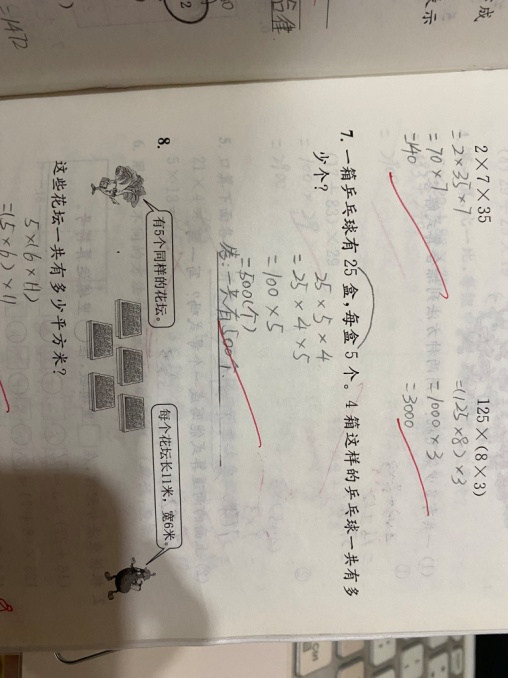 2×7×35
=2×35×7
=70×7
=140
125×(8×3)
=(125×8)×3
=1000×3
=3000
7. 一箱乒乓球有25盒，每盒5个。4箱这样的乒乓球一共有多
少个？
25×5×4
=25×4×5
=100×5
=500(个)
8.
有5个同样的花坛。
每个花坛长11米，宽6米。
这些花坛一共有多少平方米？
5×(6×11)
=(5×6)×11
=1472